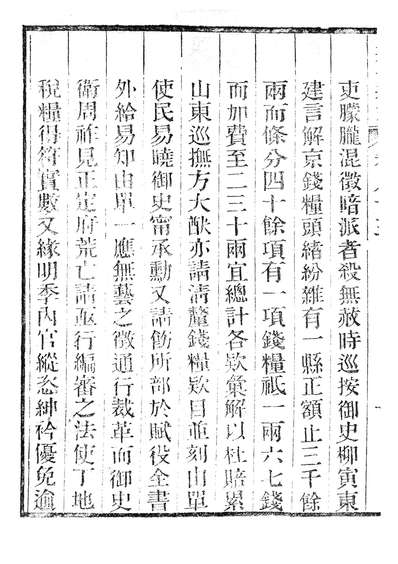 吏朦朧混徵暗派者殺無赦時巡按御史柳寅東
建言解京錢糧頭緒紛雜有一縣正額止三千餘
兩而條分四十餘項有一項錢糧祗一兩六七錢
而加費至二三十兩宜總計各欵彙解以杜賠累
山東巡撫方大猷亦請清釐錢糧欵目並刻由單
使民易曉御史甯承勳又請飭所部於賦役全書
外給易知由單一應無藝之徵通行裁革而御史
衛周祚見正定府荒亡請亟行編審之法使丁地
稅糧得符實數又緣明季內官縱恣紳衿優免逾